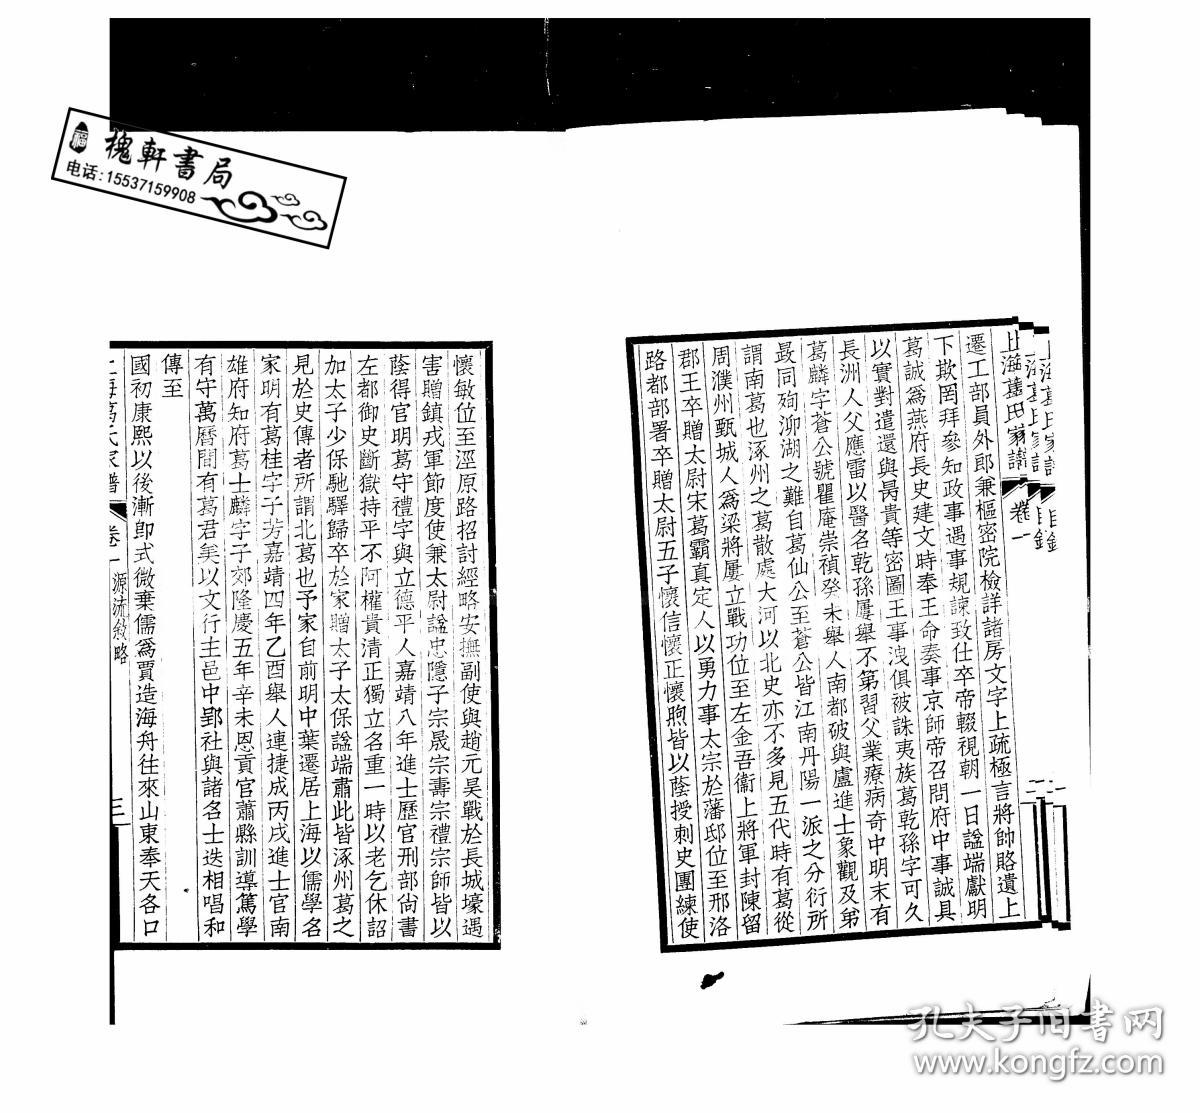 槐軒書局
电话:15537159908
上海葛氏家譜 卷一
目錄
遷工部員外郎兼樞密院檢詳諸房文字上疏極言將帥賂遺上
下欺罔拜參知政事遇事規諫致仕卒帝輟視朝一日諡端獻明
葛誠爲燕府長史建文時奉王命奏事京師帝召問府中事誠具
以實對遣還與昺貴等密圖王事洩俱被誅夷族葛乾孫字可久
長洲人父應雷以醫名乾孫屢舉不第習父業療病奇中明末有
葛麟字蒼公號瞿庵崇禎癸未舉人南都破與盧進士象觀及弟
最同殉泖湖之難自葛仙公至蒼公皆江南丹陽一派之分衍所
謂南葛也涿州之葛散處大河以北史亦不多見五代時有葛從
周濮州甄城人爲梁將屢立戰功位至左金吾衞上將軍封陳留
郡王卒贈太尉宋葛霸真定人以勇力事太宗於藩邸位至邢洛
路都部署卒贈太尉五子懷信懷正懷煦皆以蔭授刺史團練使
懷敏位至涇原路招討經略安撫副使與趙元昊戰於長城壕遇
害贈鎮戎軍節度使兼太尉諡忠隱子宗晟宗壽宗禮宗師皆以
蔭得官明葛守禮字與立德平人嘉靖八年進士歷官刑部尚書
左都御史斷獄持平不阿權貴清正獨立名重一時以老乞休詔
加太子少保馳驛歸卒於家贈太子太保諡端肅此皆涿州葛之
見於史傳者所謂北葛也予家自前明中葉遷居上海以儒學名
家明有葛桂字子芳嘉靖四年乙酉舉人連捷成丙戌進士官南
雄府知府葛士麟字子郊隆慶五年辛未恩貢官蕭縣訓導篤學
有守萬曆間有葛君矣以文行主邑中郢社與諸名士迭相唱和
傳至
國初康熙以後漸卽式微棄儒爲賈造海舟往來山東奉天各口
上海葛氏家譜 卷一 源流敘略 三
孔夫子旧书网
www.kongfz.com